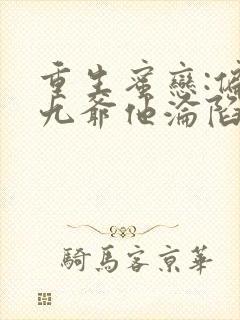 重生蜜戀:偏
九爺他淪陷
騎馬客京華